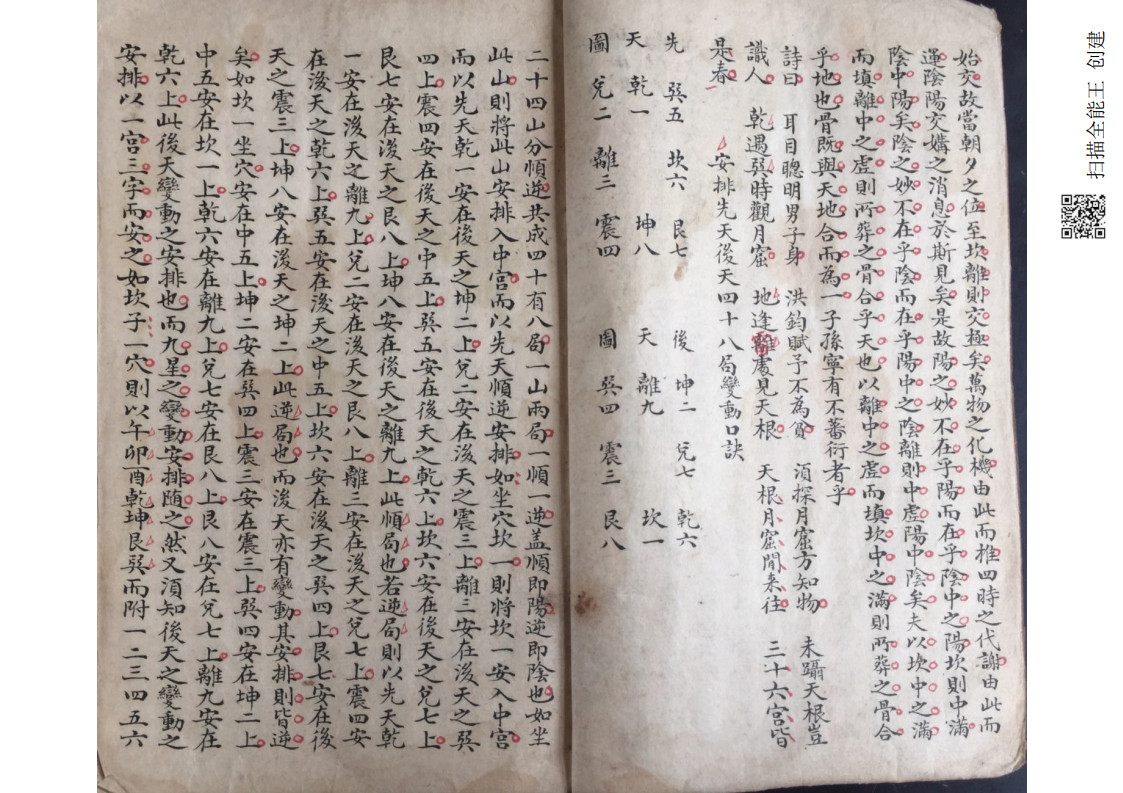 始交故當朝夕之位至坎離則交極矣萬物之化機由此而推四時之代謝由此而
運陰陽交媾之消息於斯見矣是故陽之妙不在乎陽而在乎陰中之陽坎則中滿
陰中陽矣陰之妙不在乎陰而在乎陽中之陰離則中虛陽中陰矣夫以坎中之滿
而填離中之虛則所葬之骨合乎天也以離中之虛而填坎中之滿則所葬之骨合
乎地也骨既與天地合而為一子孫寧有不蕃衍者乎
詩曰 耳目聰明男子身 洪鈞賦予不為貧 須探月窟方知物 未躡天根豈
識人 乾遇巽時觀月窟 地逢離處見天根 天根月窟閒来往 三十六宮皆
是春
安排先天後天四十八局變動口訣
先 巽五 坎六 艮七 後 坤二 兌七 乾六
天 乾一 坤八 天 離九 坎一
圖 兌二 離三 震四 圖 巽四 震三 艮八
二十四山分順逆共成四十有八局一山兩局一順一逆盖順即陽逆即陰也如坐
此山則將此山安排入中宮而以先天順逆安排如坐穴坎一則將坎一安入中宮
而以先天乾一安在後天之坤二上兌二安在後天之震三上離三安在後天之巽
四上震四安在後天之中五上巽五安在後天之乾六上坎六安在後天之兌七上
艮七安在後天之艮八上坤八安在後天之離九上此順局也若逆局則以先天乾
一安在後天之離九上兌二安在後天之艮八上離三安在後天之兌七上震四安
在後天之乾六上巽五安在後天之中五上坎六安在後天之巽四上艮七安在後
天之震三上坤八安在後天之坤二上此逆局也而後天亦有變動其安排則皆逆
矣如坎一坐穴安在中五上坤二安在巽四上震三安在震三上巽四安在坤二上
中五安在坎一上乾六安在離九上兌七安在艮八上艮八安在兌七上離九安在
乾六上此後天變動之安排也而九星之變動安排随之然又須知後天之變動之
安排以一宮三字而安之如坎子一穴則以午卯酉乾坤艮巽而附一二三四五六
扫描全能王 创建